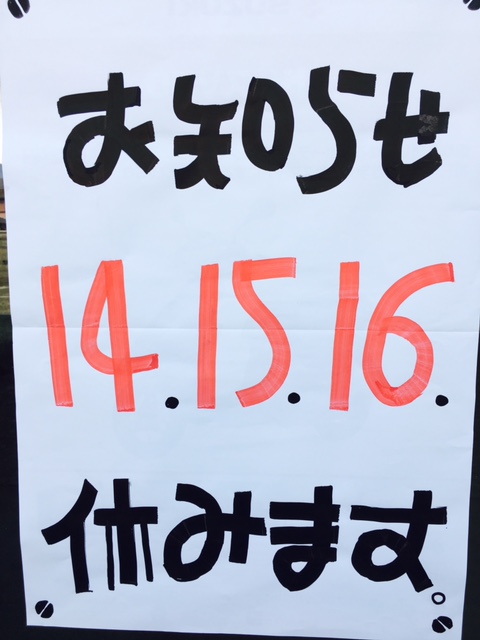 お知らせ
14.15.16.
休みます。